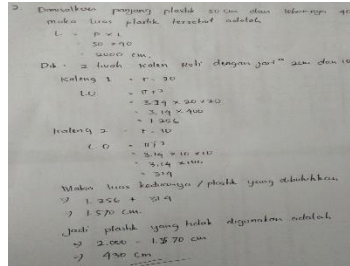 2. Dimisalkan panjang plastik 50 cm dan lebarnya 40
maka luas plastik tersebut adalah
L = P x L
= 50 x 40
= 2000 cm.
Dik : 2 buah kaleng dengan jari" 20cm dan 10
Kaleng 1 = r = 20
L.O = πr²
= 3.14 x 20 x 20
= 3.14 x 400
= 1.256
Kaleng 2 r = 10
L O = πr²
= 3.14 x 10 x 10
= 3.14 x 100.
= 314
Maka luas keduanya / plastik yang dibutuhkan
=> 1.256 + 314
=> 1.570 cm.
Jadi plastik yang tidak digunakan adalah
=> 2.000 - 1.570 cm
=> 430 cm